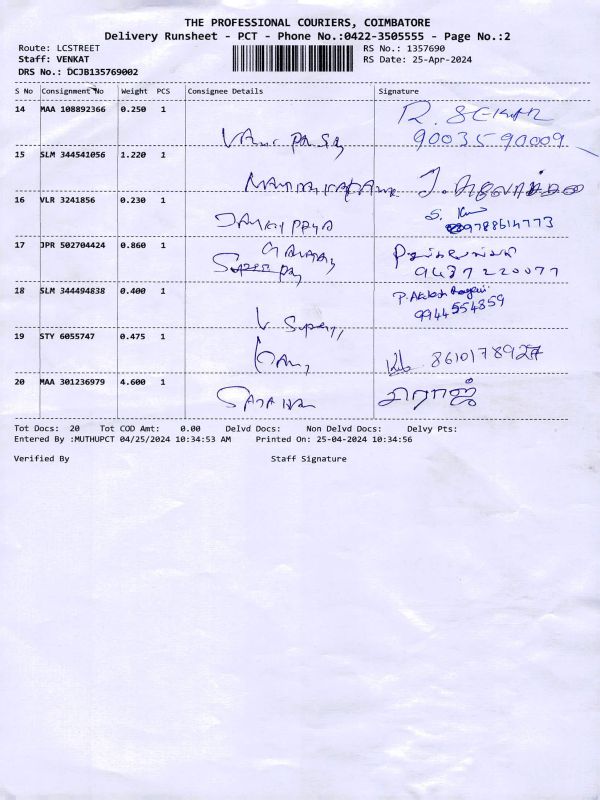 THE PROFESSIONAL COURIERS, COIMBATORE
Delivery Runsheet - PCT - Phone No.:0422-3505555 - Page No.:2
Route: LCSTREET RS No.: 1357690
Staff: VENKAT RS Date: 25-Apr-2024
DRS No.: DCJB135769002
S No Consignment No Weight PCS Consignee Details Signature
14 MAA 108892366 0.250 1 R. SEKAR
9003590009
15 SLM 344541056 1.220 1
16 VLR 3241856 0.230 1
9788614773
17 JPR 502704424 0.860 1
9437220077
18 SLM 344494838 0.400 1
9944554859
19 STY 6055747 0.475 1 8610178927
20 MAA 301236979 4.600 1
Tot Docs: 20 Tot COD Amt: 0.00 Delvd Docs: Non Delvd Docs: Delvy Pts:
Entered By :MUTHUPCT 04/25/2024 10:34:53 AM Printed On: 25-04-2024 10:34:56
Verified By Staff Signature